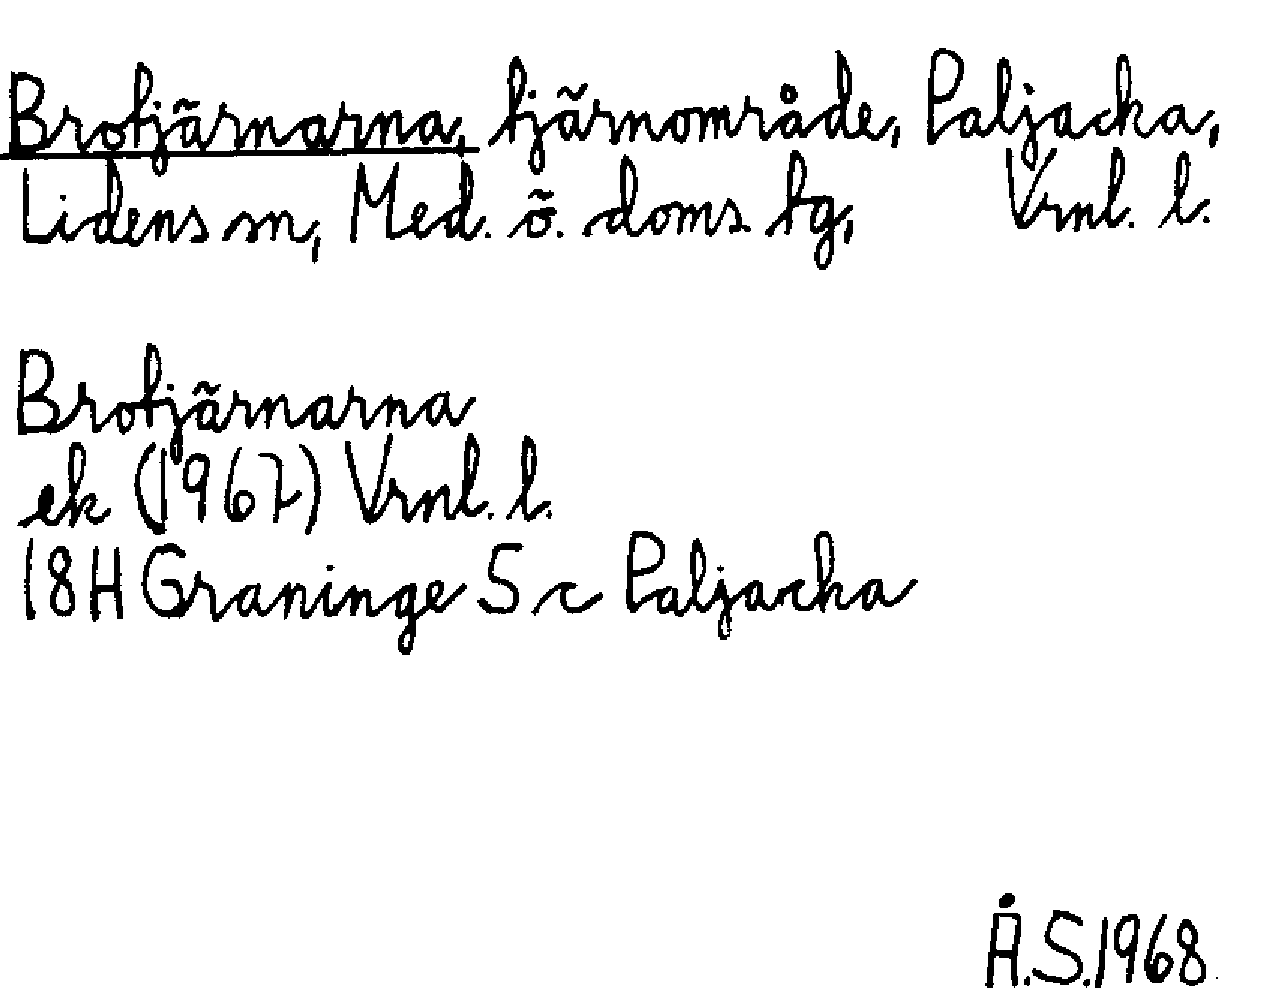 Brotjärnarna, tjärnområde, Paljacka,
Lidens sn, Med. ö. doms. tg, Vrnl. l.
Brotjärnarna
ek (1967) Vrnl. l.
18H Graninge 5 c Paljacka
Å.S.1968